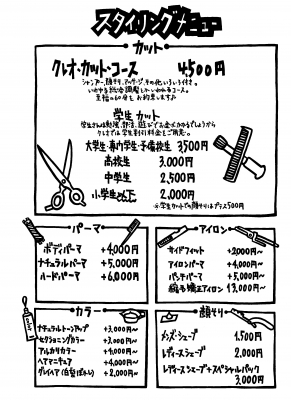 スタイリングメニュー
カット
クレオ・カット・コース 4,500円
シャンプー、顔そり、マッサージ、その他いろいろ付き。
至福の60分をお約束します♪
学生カット
学生さんは勉強、部活、遊びでお金がかかるでしょうから
クレオでは学生割引料金をご用意。
大学生・専門学生・予備校生 3500円
高校生 3,000円
中学生 2,500円
小学生以下 2,000円
※学生カットでの顔そりはプラス500円
パーマ
ボディパーマ +4,000円
ナチュラルパーマ +5,000円
ハードパーマ +6,000円
アイロン
サイドフィット +2,000円~
アイロンパーマ +4,000円~
パンチパーマ +5,000円~
縮毛矯正アイロン 13,000円~
カラー
ナチュラルトーンアップ +3,000円~
セクショニングカラー +3,000円~
アルカリカラー +4,000円~
ヘアマニキュア +4,000円~
グレイヘア(白髪ぼかし) +2,000円~
顔そり
メンズ・シェーブ 1,500円
レディースシェーブ 2,000円
レディースシェーブ+スペシャルパック
3,000円